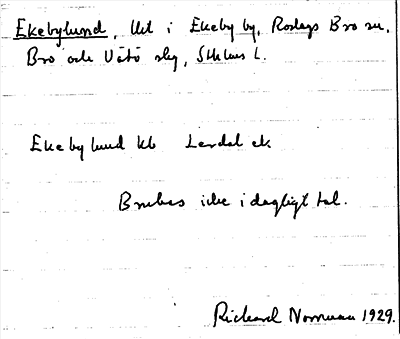 Ekebylund, lht i Ekeby by, Roslags Bro sn,
Bro och Vätö slg, Sthlms l.
Ekebylund kb Lerdal ek
Brukas icke i dagligt tal.
Richard Norrman 1929.